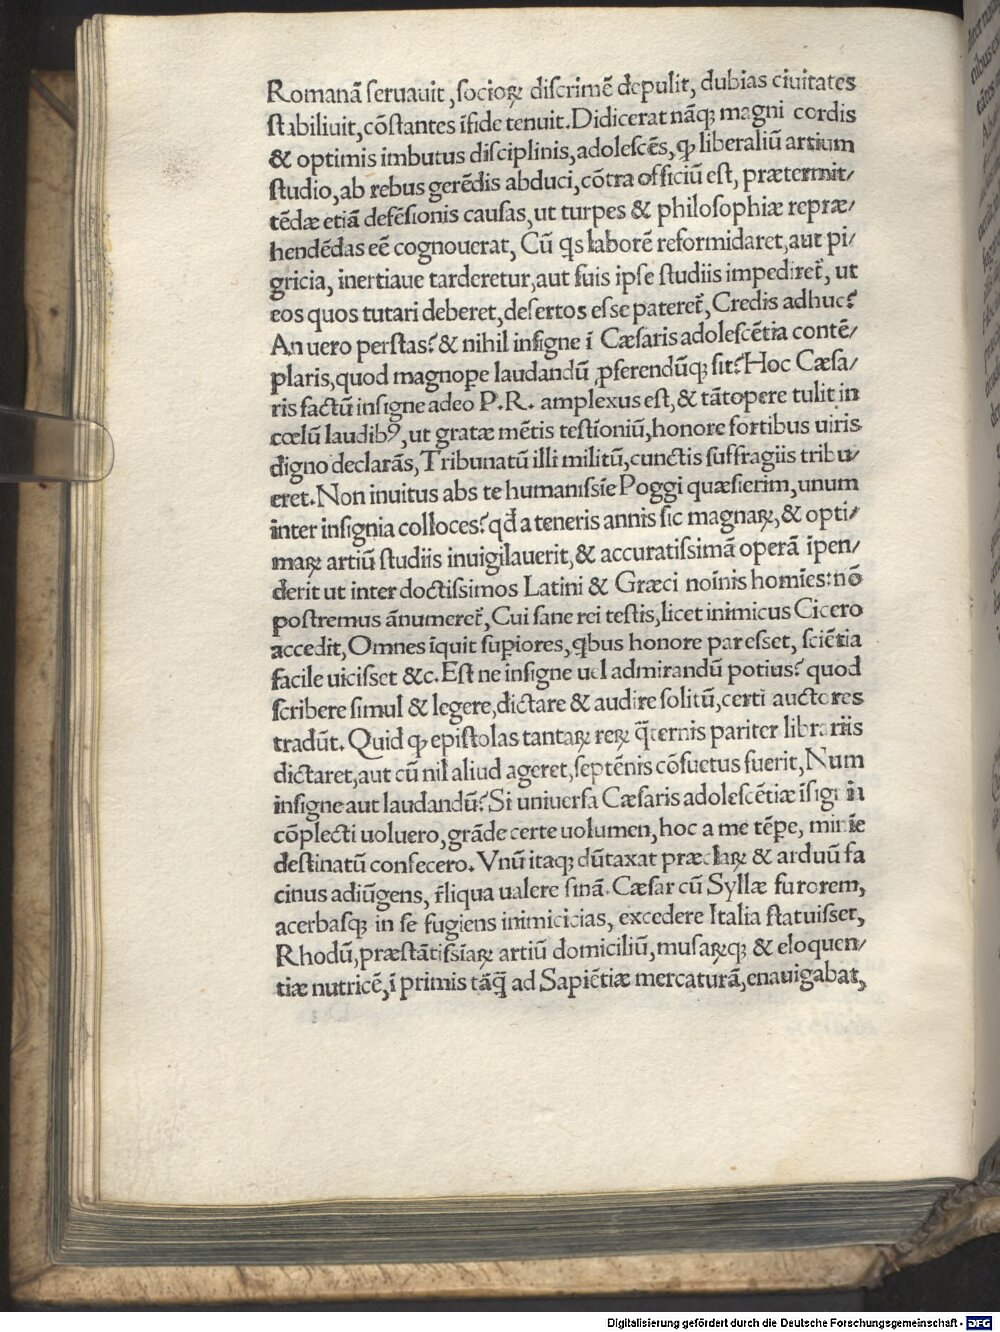 Romanā ſeruauit, ſocioꝝ diſcrimē depulit, dubias ciuitates
ſtabiliuit, cōſtantes īfide tenuit. Didicerat nāqꝫ magni cordis
& optimis imbutus diſciplinis, adoleſcēs, ꝙ liberaliū artium
ſtudio, ab rebus gerēdis abduci, cōtra officiū eſt, prætermit/
tēdæ etiā defēſionis cauſas, ut turpes & philoſophiæ repræ/
hendēdas eē cognouerat, Cū qs laborē reformidaret, aut pi/
gricia, inertiaue tarderetur, aut ſuis ipſe ſtudiis impediret̄, ut
eos quos tutari deberet, deſertos eſſe pateret̄, Credis adhuc?
An uero perſtas? & nihil inſigne ī Cæſaris adoleſcētia contē/
plaris, quod magnope laudandū ꝓferendūqꝫ ſit? Hoc Cæſa/
ris factū inſigne adeo P.R. amplexus eſt, & tātopere tulit in
cœlū laudibꝰ, ut gratæ mētis teſtīoniū, honore fortibus uiris
digno declarās, Tribunatū illi militū, cunctis ſuffragiis tribu/
eret. Non inuitus abs te humaniſſīe Poggi quæſierim, unum
inter inſignia colloces? qđ a teneris annis ſic magnaꝝ, & opti/
maꝝ artiū ſtudiis inuigilauerit, & accuratiſſimā operā īpen/
derit ut inter doctiſſimos Latini & Græci noīnis homīes: nō
poſtremus ānumeret̄, Cui ſane rei teſtis, licet inimicus Cicero
accedit, Omnes īquit ſupiores, qbus honore par eſſet, ſciētia
facile uiciſſet &c. Eſt ne inſigne uel admirandū potius? quod
ſcribere ſimul & legere, dictare & audire ſolitū, certi auctores
tradūt. Quid ꝙ epiſtolas tantaꝝ reꝝ q̄ternis pariter librariis
dictaret, aut cū nil aliud ageret, ſeptēnis cōſuetus fuerit, Num
inſigne aut laudandū? Si uniuerſa Cæſaris adoleſcētiæ īſignia
cōplecti uoluero, grāde certe uolumen, hoc a me tēpe, minīe
deſtinatū confecero. Vnū itaqꝫ dūtaxat præclaꝝ & arduū fa
cinus adiūgens, r̄liqua ualere ſinā. Cæſar cū Syllæ furorem,
acerbaſqꝫ in ſe fugiens inimicicias, excedere Italia ſtatuiſſet,
Rhodū, præſtātiſſīaꝝ artiū domiciliū, muſaꝝqꝫ & eloquen/
tiæ nutricē, ī primis tāq̄ ad Sapiētiæ mercaturā, enauigabat,
Digitalisierung gefördert durch die Deutsche Forschungsgemeinschaft - DFG